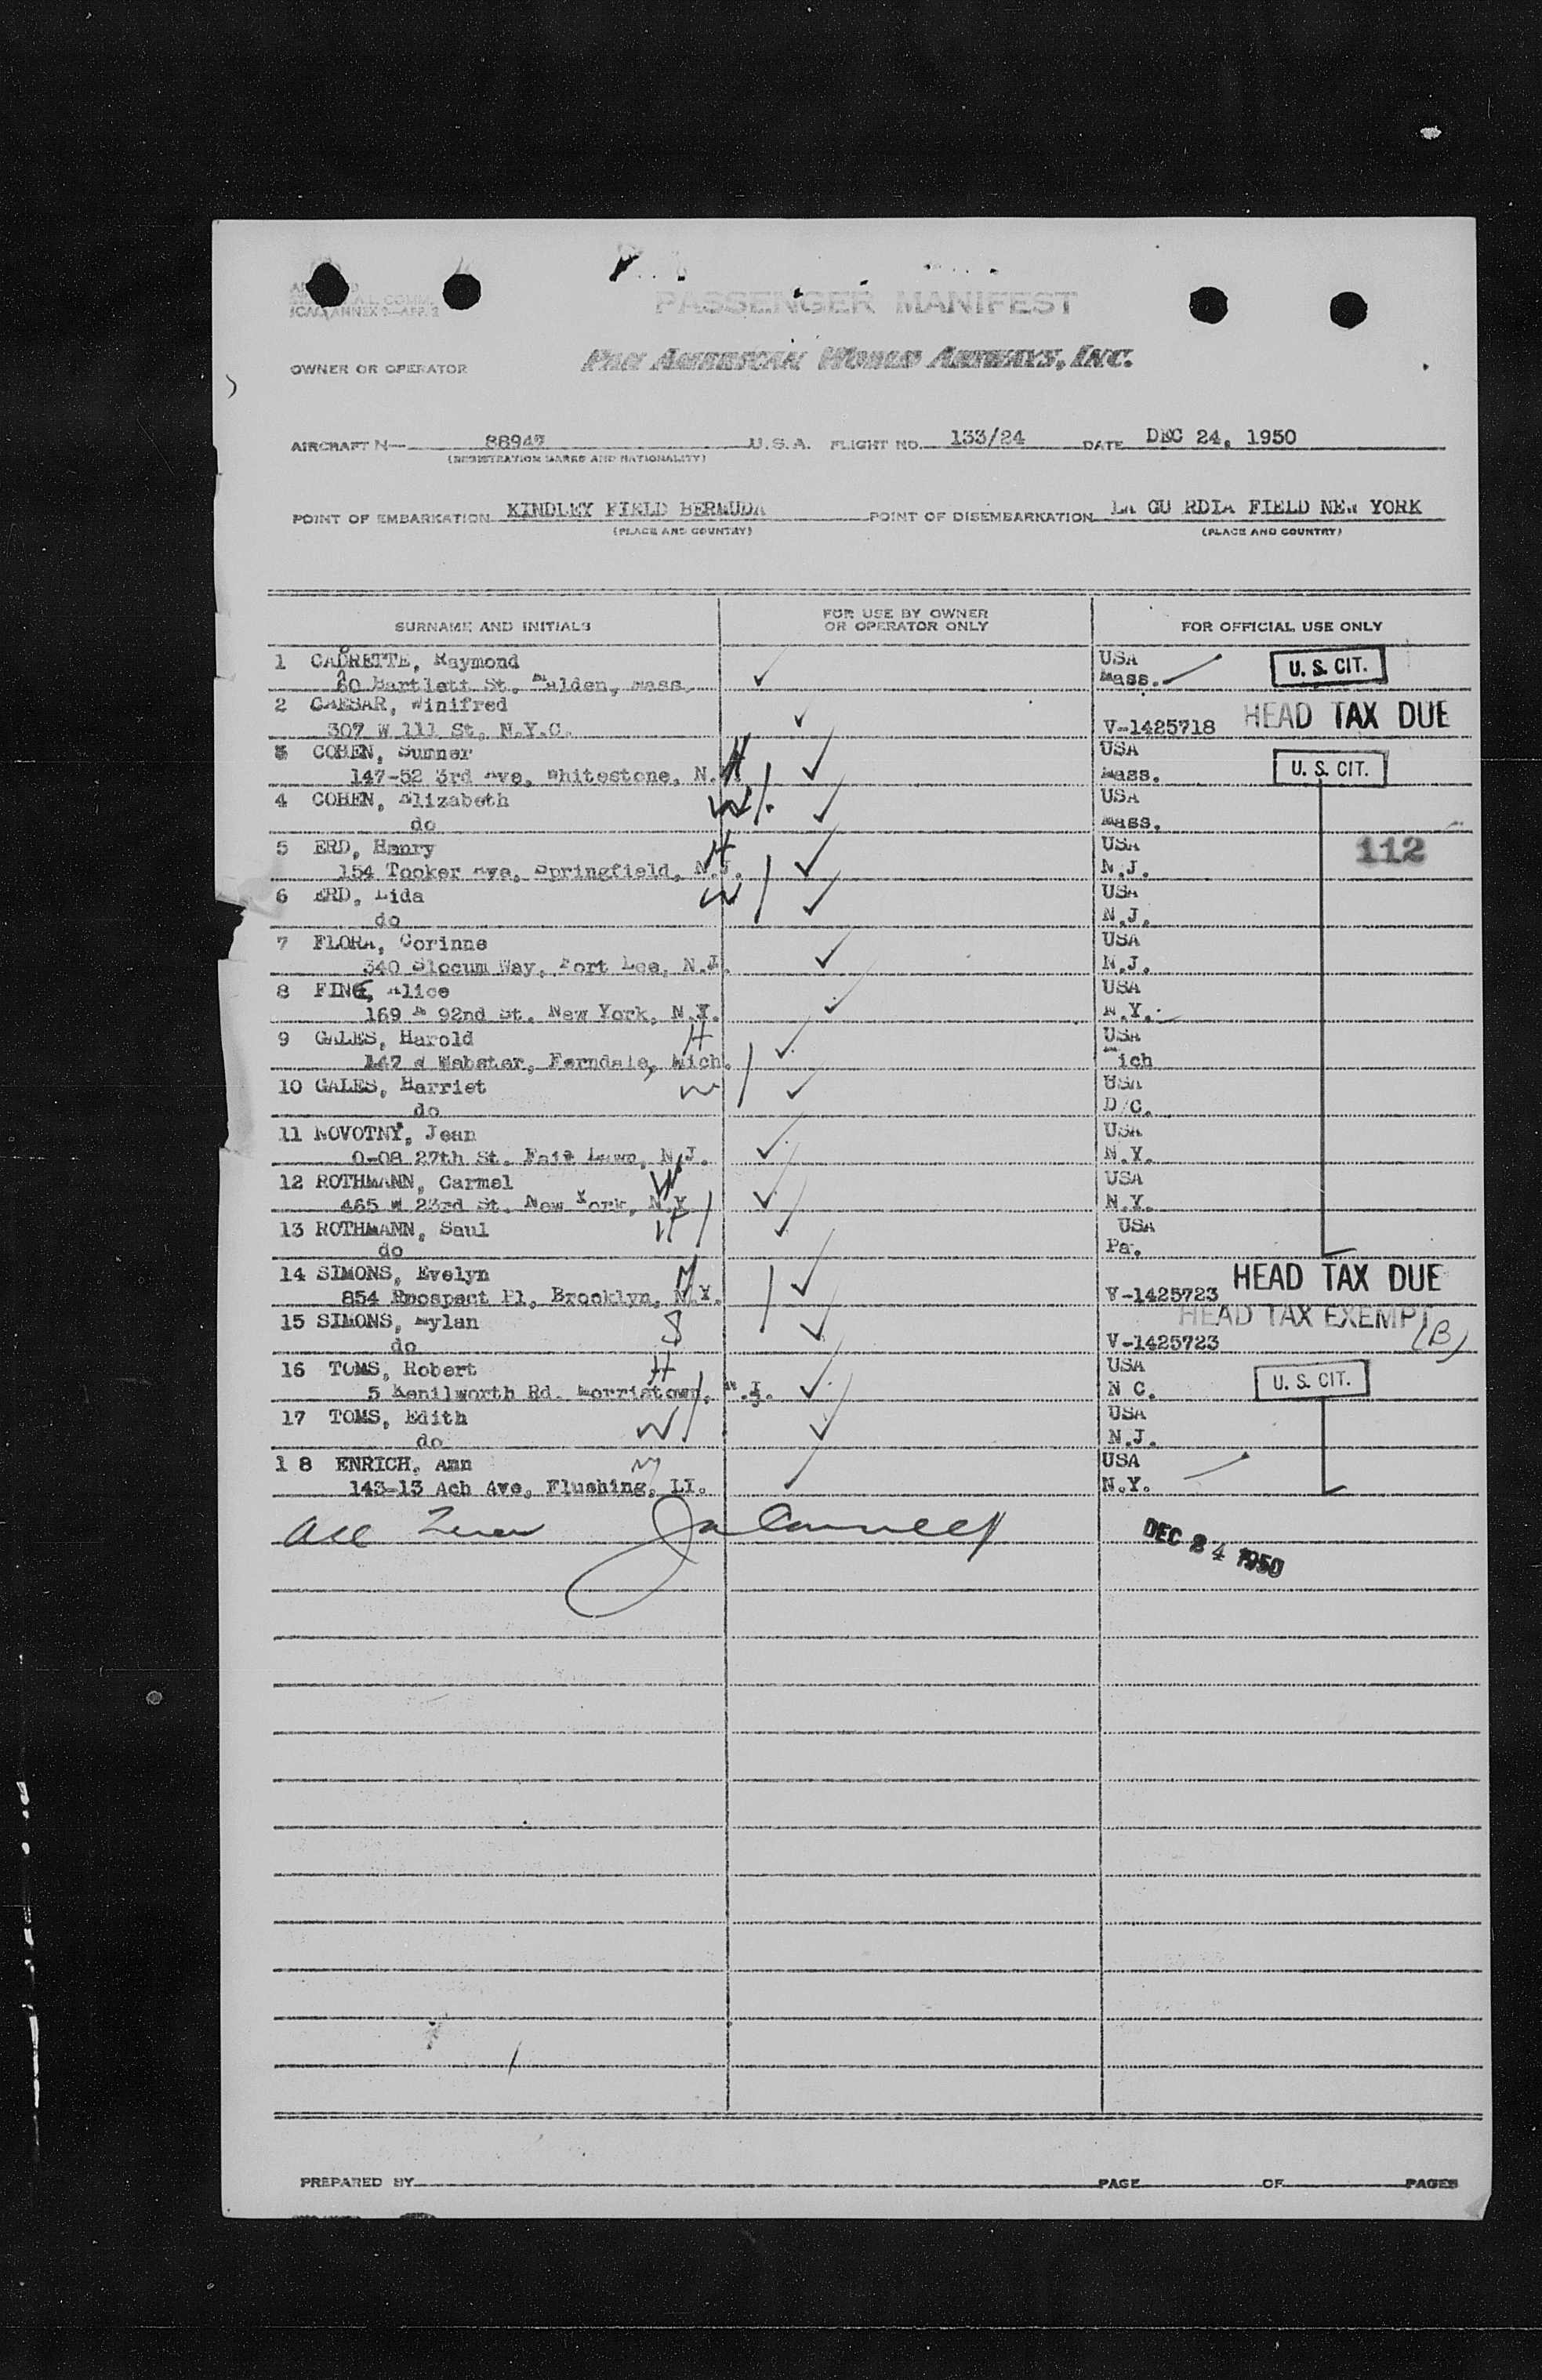 PASSENGER MANIFEST
PAN AMERICAN WORLD AIRWAYS, INC.
OWNER OR OPERATOR
AIRCRAFT N— 88947 U.S.A. FLIGHT NO. 133/24 DATE DEC 24, 1950
(REGISTRATION MARKS AND NATIONALITY)
POINT OF EMBARKATION KINDLEY FIELD BERMUDA POINT OF DISEMBARKATION LA GU RDIA FIELD NEW YORK
(PLACE AND COUNTRY) (PLACE AND COUNTRY)
SURNAME AND INITIALS FOR USE BY OWNER OR OPERATOR ONLY FOR OFFICIAL USE ONLY
1 Raymond USA U. S. CIT.
Bartlett St. Malden, Mass. Mass.
2 CAESAR, Winifred
307 W 111 St, N.Y.C. V-1425718 HEAD TAX DUE
3 COHEN, Sumner H USA
147-52 3rd Ave, Whitestone, N. Mass. U. S. CIT.
4 COHEN, Elizabeth W USA
do Mass.
5 ERD, Henry H USA 112
154 Tooker Ave, Springfield, N.J. N.J.
6 ERD, Lida W USA
do N.J.
7 FLORA, Corinne USA
340 Slocum Way, Fort Lee, N.J. N.J.
8 Alice USA
169 E 92nd St. New York, N.Y. N.Y.
9 GALES, Harold H USA
147 W Webster, Ferndale, Mich. Mich
10 GALES, Harriet W USA
do D/C.
11 NOVOTNY, Jean USA
0-08 27th St. Fair Lawn, N.J. N.Y.
12 ROTHMANN, Carmel W USA
465 W 23rd St. New York, N.Y. N.Y.
13 ROTHMANN, Saul H USA
do Pa.
14 SIMONS, Evelyn M HEAD TAX DUE
854 Prospect Pl, Brooklyn, N.Y. V-1425723
15 SIMONS, Mylan S HEAD TAX EXEMPT
do V-1425723 (B)
16 TOMS, Robert H USA
5 Kenilworth Rd. Morristown, N.J. N C. U. S. CIT.
17 TOMS, Edith W USA
do N.J.
1 8 ENRICH, Ann USA
143-13 Ach Ave, Flushing, LI. N.Y.
All
DEC 24 1950
PREPARED BY PAGE OF PAGES